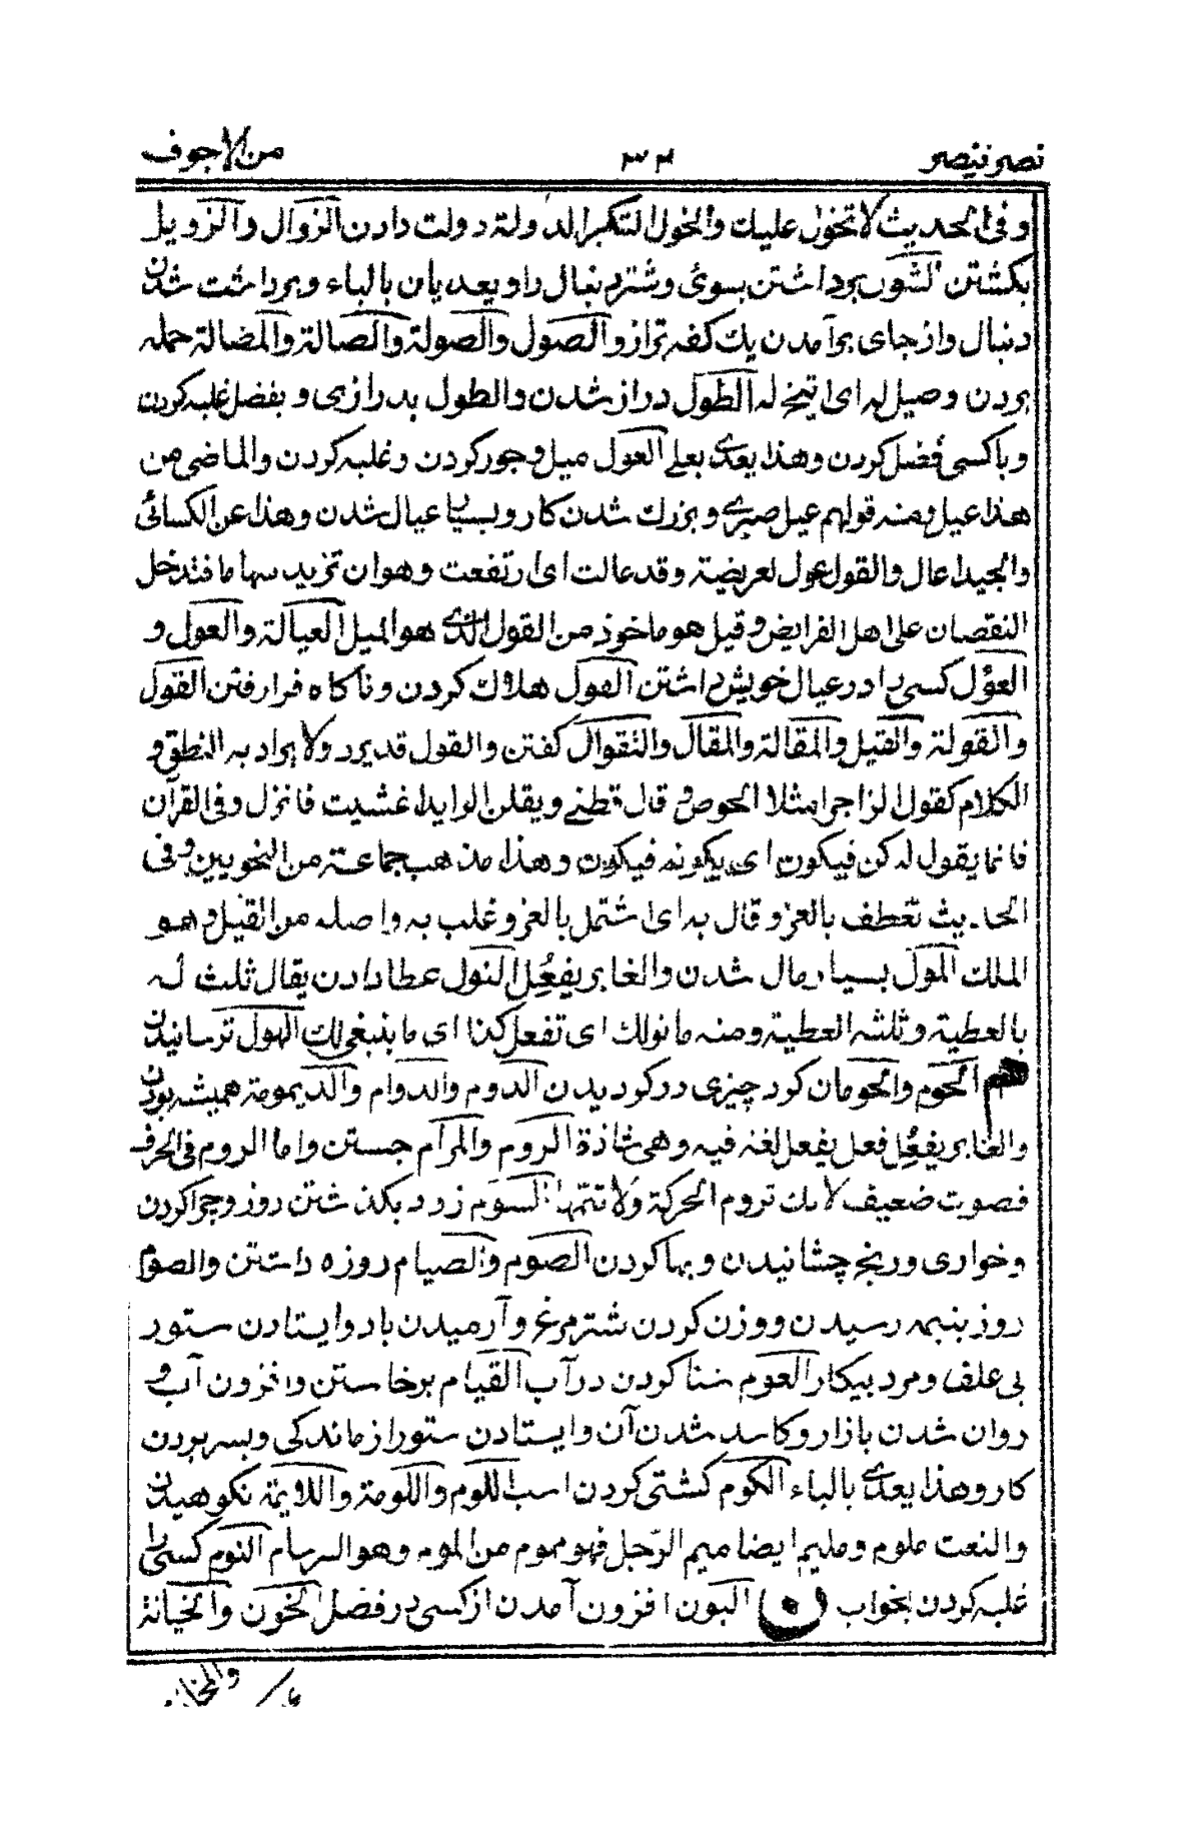 نصر ینصر ۳۳۴ من الاجوف
و فی الحدیث لا تخول علیك والخول التكبر الدولة دولت دادن الزوال والزویل
بكشتن الشول برداشتن بسوئ وشتر دنبال را ویعدیان بالباء وبرداشت شدن
دنبال واز جای برآمدن یك كفه ترازو الصول والصولة والصالة والمصالة حمله
بردن وصیل له ای اتیح له الطول دراز شدن والطول بدرازی و بفضل غلبه كردن
و باكسی فضل كردن وهذا یعدی بعلی العول میل و جور كردن و غلبه كردن والماضی من
هذا عیل ومنه قولهم عیل صبری و بزرك شدن كار و بسیار عیال شدن وهذا عن الكسائی
والجید اعال والقول عول لعریضة وقد عالت ای ارتفعت وهو ان تزید سهاما فتدخل
النقصان علی اهل الفرایض وقیل هو ماخوذ من القول الذی هو المیل العیالة والعول و
العؤل كسی را در عیال خویش داشتن الغول هلاك كردن و ناكاه فرا رفتن القول
والقولة والقیل والمقالة والمقال والتقوال كفتن والقول قد یرد ولا یراد به النطق و
الكلام كقول الراجز امتلا الحوض و قال قطنی ویقلن الراید اغشیت فانزل وفی القرآن
فانما یقول له كن فیكون ای یكونه فیكون وهذا مذهب جماعة من النحویین وفی
الحدیث تعطف بالعز وقال به ای اشتمل بالعز وغلب به واصله من القیل وهو
الملك المول بسیار مال شدن والغابر یفعل النول عطا دادن یقال ثلث له
بالعطیة وثلثه العطیة ومنه ما نولك ای تفعل كذا ای ما ینبغی لك الهول ترسانیدن
م الحوم والحومان كرد چیزی در كردیدن الدوم والدوام والدیمومة همیشه بودن
والغابر یفعل فعل یفعل لغة فیه وهی شاذة الروم والمرام جستن واما الروم فی الحرف
فصوت ضعیف لانك تروم الحركة ولا تتمها السوم زود بكذشتن روز و چرا كردن
و خواری و رنج چشانیدن و بها كردن الصوم والصیام روزه داشتن والصوم
روز بنیمه رسیدن ووزن كردن شتر مرغ و آرمیدن باد وایستادن ستور
بی علف و مرد بیكار العوم شنا كردن در آب القیام برخاستن وافزون آب و
روان شدن بازار وكاسد شدن آن وایستادن ستور از ماندكی و بسر بردن
كار وهذا یعدی بالباء الكوم كشتی كردن اسب اللوم واللومة واللایمة نكوهیدن
والنعت ملوم وملیم ایضا میم الرجل فهو مموم من الموم وهو السرسام النوم كسی را
غلبه كردن بخواب ن البون افزون آمدن از كسی در فضل الخون والخیانة
والمخانة